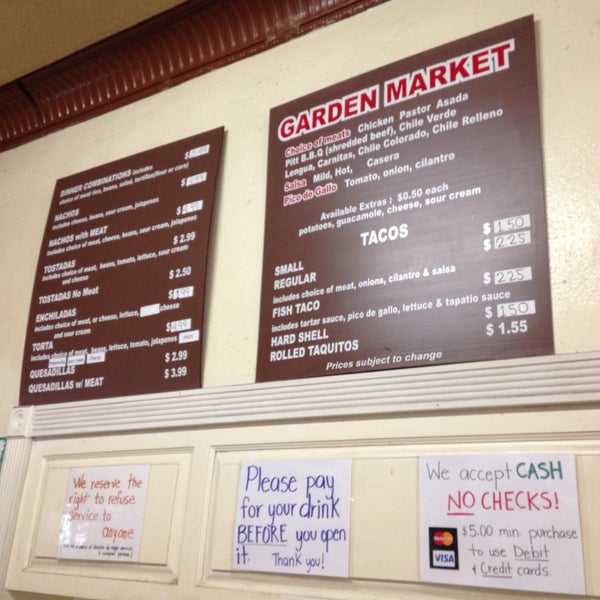 DINNER COMBINATIONS includes
choice of meat rice, beans, salad, tortillas(flour or corn)
NACHOS
includes cheese, beans, sour cream, jalapenos
NACHOS with MEAT
includes choice of meat, cheese, beans, sour cream, jalapenos
TOSTADAS $ 2.99
includes choice of meat, beans, tomato, lettuce, sour cream
and cheese
TOSTADAS No Meat $ 2.50
ENCHILADAS
includes choice of meat, or cheese, lettuce, cheese
and sour cream
TORTA
includes choice of meat, beans, lettuce, tomato, jalapenos
QUESADILLAS $ 2.99
QUESADILLAS w/ MEAT $ 3.99
GARDEN MARKET
Choice of meats Chicken Pastor Asada
Pitt B.B.Q (shredded beef), Chile Verde
Lengua, Carnitas, Chile Colorado, Chile Relleno
Salsa Mild, Hot, Casera
Pico de Gallo Tomato, onion, cilantro
Available Extras : $0.50 each
potatoes, guacamole, cheese, sour cream
TACOS
SMALL $ 1.50
REGULAR $ 2.25
includes choice of meat, onions, cilantro & salsa
FISH TACO $ 2.25
includes tartar sauce, pico de gallo, lettuce & tapatio sauce
HARD SHELL $ 1.50
ROLLED TAQUITOS $ 1.55
Prices subject to change
We reserve the
right to refuse
service to
anyone
Please pay
for your drink
BEFORE you open
it. Thank you!
We accept CASH
NO CHECKS!
MasterCard
VISA
$5.00 min. purchase
to use Debit
& Credit cards.